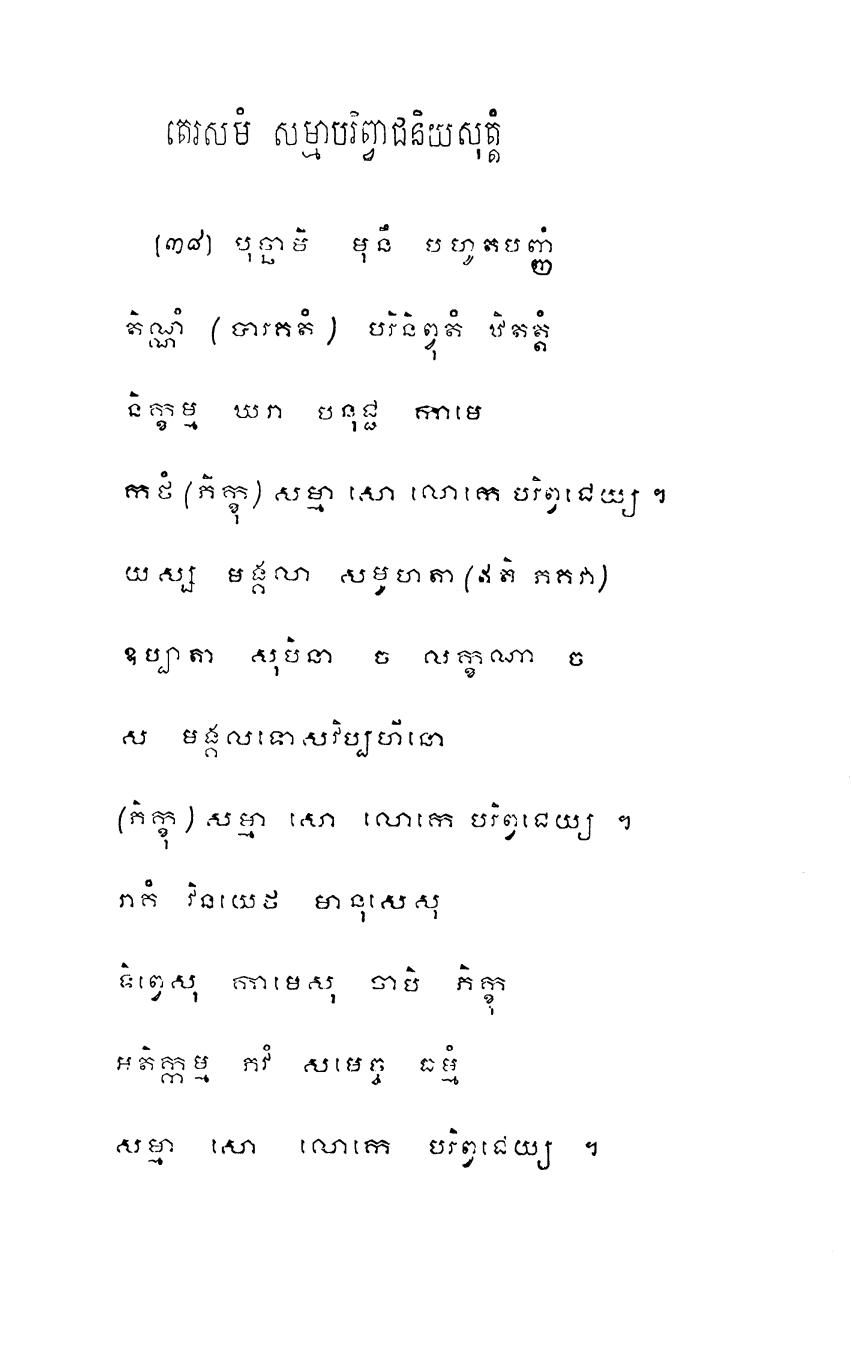 តេរសមំ សម្មាបរិព្វាជនិយសុត្តំ
(៣៨) បុច្ឆាមិ មុនឹ បហូតបញ្ញំ
តិណ្ណំ (បារគតំ) បរិនិព្វុតំ ឋិតត្តំ
និក្ខម្ម ឃរា បនុជ្ជ កាមេ
កថំ (ភិក្ខុ) សម្មា សោ លោកេ បរិព្វជេយ្យ ។
យស្ស មង្គលា សមូហតា (ឥតិ ភគវា)
ឧប្បាតា សុបិនា ច លក្ខណា ច
ស មង្គលទោសវិប្បហីនោ
(ភិក្ខុ) សម្មា សោ លោកេ បរិព្វជេយ្យ ។
រាគំ វិនយេថ មានុសេសុ
ទិព្វេសុ កាមេសុ ចាបិ ភិក្ខុ
អតិក្កម្ម ភវំ សមេច្ច ធម្មំ
សម្មា សោ លោកេ បរិព្វជេយ្យ ។